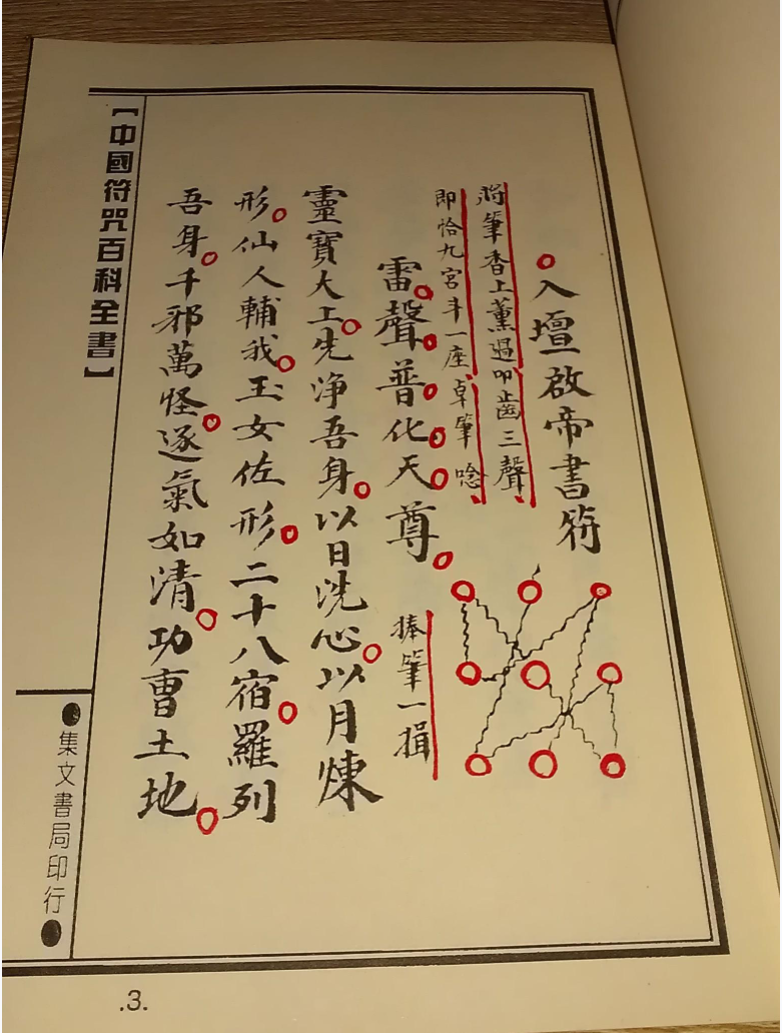 入壇啟帝書符
將筆香上薰過叩齒三聲
即恰九宮斗一座卓筆唸
雷聲普化天尊
捧筆一揖
靈寶大上先淨吾身以日洗心以月煉
形仙人輔我玉女佐形二十八宿羅列
吾身千邪萬怪逐氣如清功曹土地
【中國符咒百科全書】
●集文書局印行●
.3.